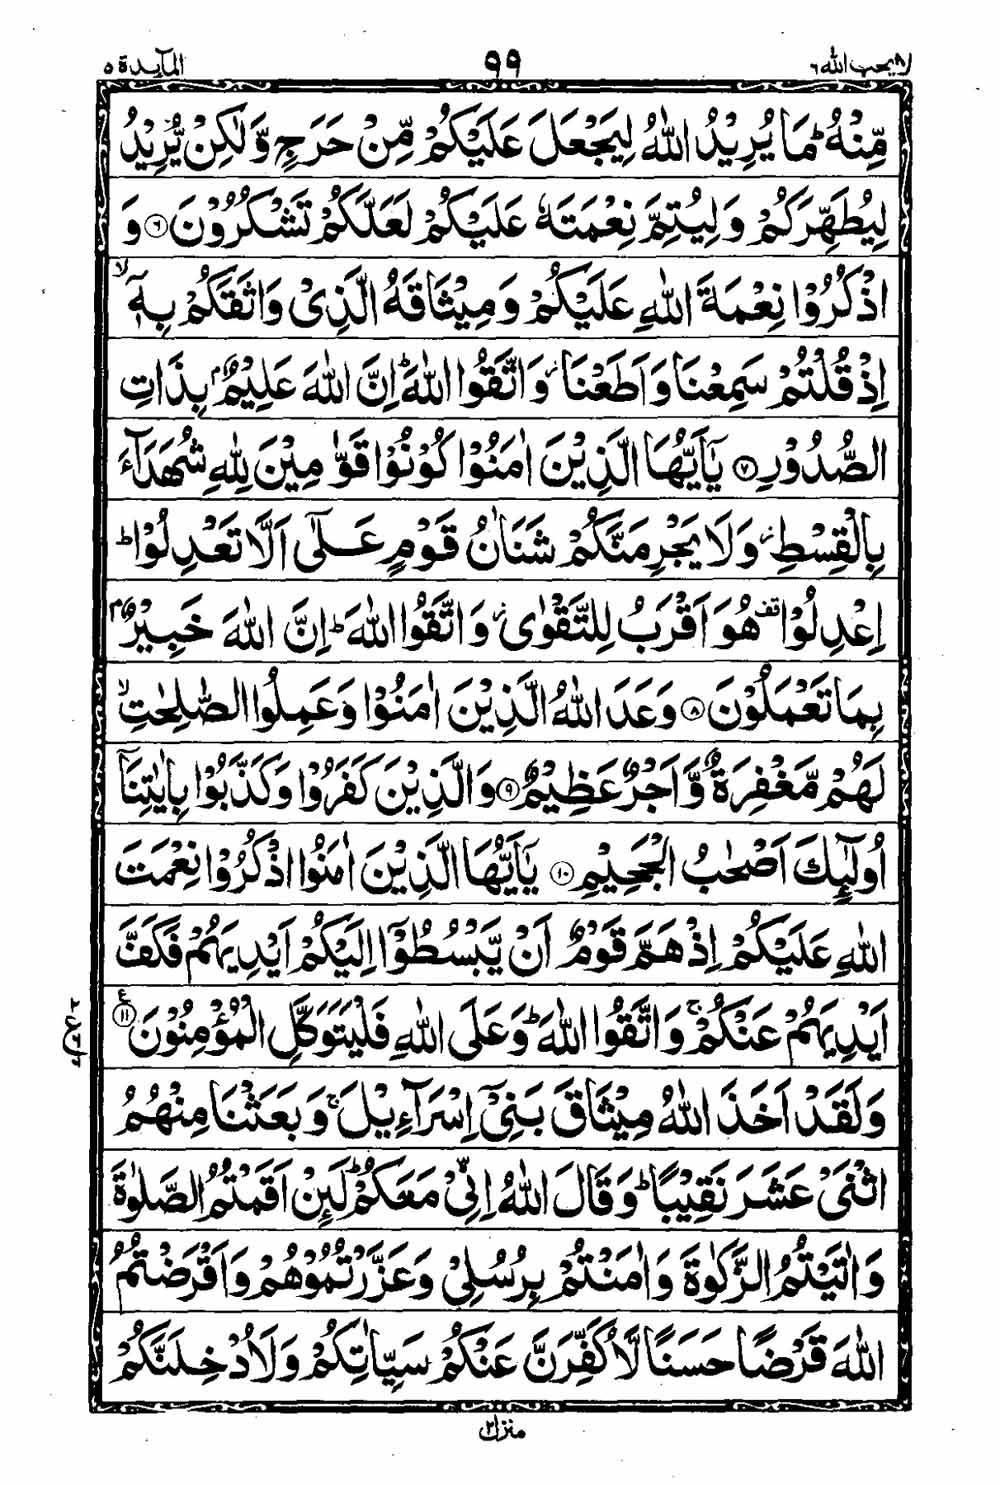 لا يحب الله ٦ ٩٩ المآيدة ٥
مِّنْهُ ؕ مَا يُرِيْدُ اللّٰهُ لِيَجْعَلَ عَلَيْكُمْ مِّنْ حَرَجٍ وَّلٰكِنْ يُّرِيْدُ
لِيُطَهِّرَكُمْ وَلِيُتِمَّ نِعْمَتَهٗ عَلَيْكُمْ لَعَلَّكُمْ تَشْكُرُوْنَ ﴿٦﴾ وَ
اذْكُرُوْا نِعْمَةَ اللّٰهِ عَلَيْكُمْ وَمِيْثَاقَهُ الَّذِيْ وَاثَقَكُمْ بِهٖۤ ۙ
اِذْ قُلْتُمْ سَمِعْنَا وَاَطَعْنَا ؗ وَاتَّقُوا اللّٰهَ ؕ اِنَّ اللّٰهَ عَلِيْمٌۢ بِذَاتِ
الصُّدُوْرِ ﴿٧﴾ يٰۤاَيُّهَا الَّذِيْنَ اٰمَنُوْا كُوْنُوْا قَوّٰمِيْنَ لِلّٰهِ شُهَدَآءَ
بِالْقِسْطِ ؗ وَلَا يَجْرِمَنَّكُمْ شَنَاٰنُ قَوْمٍ عَلٰۤى اَلَّا تَعْدِلُوْا ؕ
اِعْدِلُوْا قف هُوَ اَقْرَبُ لِلتَّقْوٰى ؗ وَاتَّقُوا اللّٰهَ ؕ اِنَّ اللّٰهَ خَبِيْرٌۢ
بِمَا تَعْمَلُوْنَ ﴿٨﴾ وَعَدَ اللّٰهُ الَّذِيْنَ اٰمَنُوْا وَعَمِلُوا الصّٰلِحٰتِ ۙ
لَهُمْ مَّغْفِرَةٌ وَّاَجْرٌ عَظِيْمٌ ﴿٩﴾ وَالَّذِيْنَ كَفَرُوْا وَكَذَّبُوْا بِاٰيٰتِنَاۤ
اُولٰٓئِكَ اَصْحٰبُ الْجَحِيْمِ ﴿١٠﴾ يٰۤاَيُّهَا الَّذِيْنَ اٰمَنُوا اذْكُرُوْا نِعْمَتَ
اللّٰهِ عَلَيْكُمْ اِذْ هَمَّ قَوْمٌ اَنْ يَّبْسُطُوْۤا اِلَيْكُمْ اَيْدِيَهُمْ فَكَفَّ
اَيْدِيَهُمْ عَنْكُمْ ۚ وَاتَّقُوا اللّٰهَ ؕ وَعَلَى اللّٰهِ فَلْيَتَوَكَّلِ الْمُؤْمِنُوْنَ ﴿١١﴾ ع
وَلَقَدْ اَخَذَ اللّٰهُ مِيْثَاقَ بَنِيْۤ اِسْرَآءِيْلَ ۚ وَبَعَثْنَا مِنْهُمُ
اثْنَيْ عَشَرَ نَقِيْبًا ؕ وَقَالَ اللّٰهُ اِنِّيْ مَعَكُمْ ؕ لَئِنْ اَقَمْتُمُ الصَّلٰوةَ
وَاٰتَيْتُمُ الزَّكٰوةَ وَاٰمَنْتُمْ بِرُسُلِيْ وَعَزَّرْتُمُوْهُمْ وَاَقْرَضْتُمُ
اللّٰهَ قَرْضًا حَسَنًا لَّاُكَفِّرَنَّ عَنْكُمْ سَيِّاٰتِكُمْ وَلَاُدْخِلَنَّكُمْ
منزل ٢